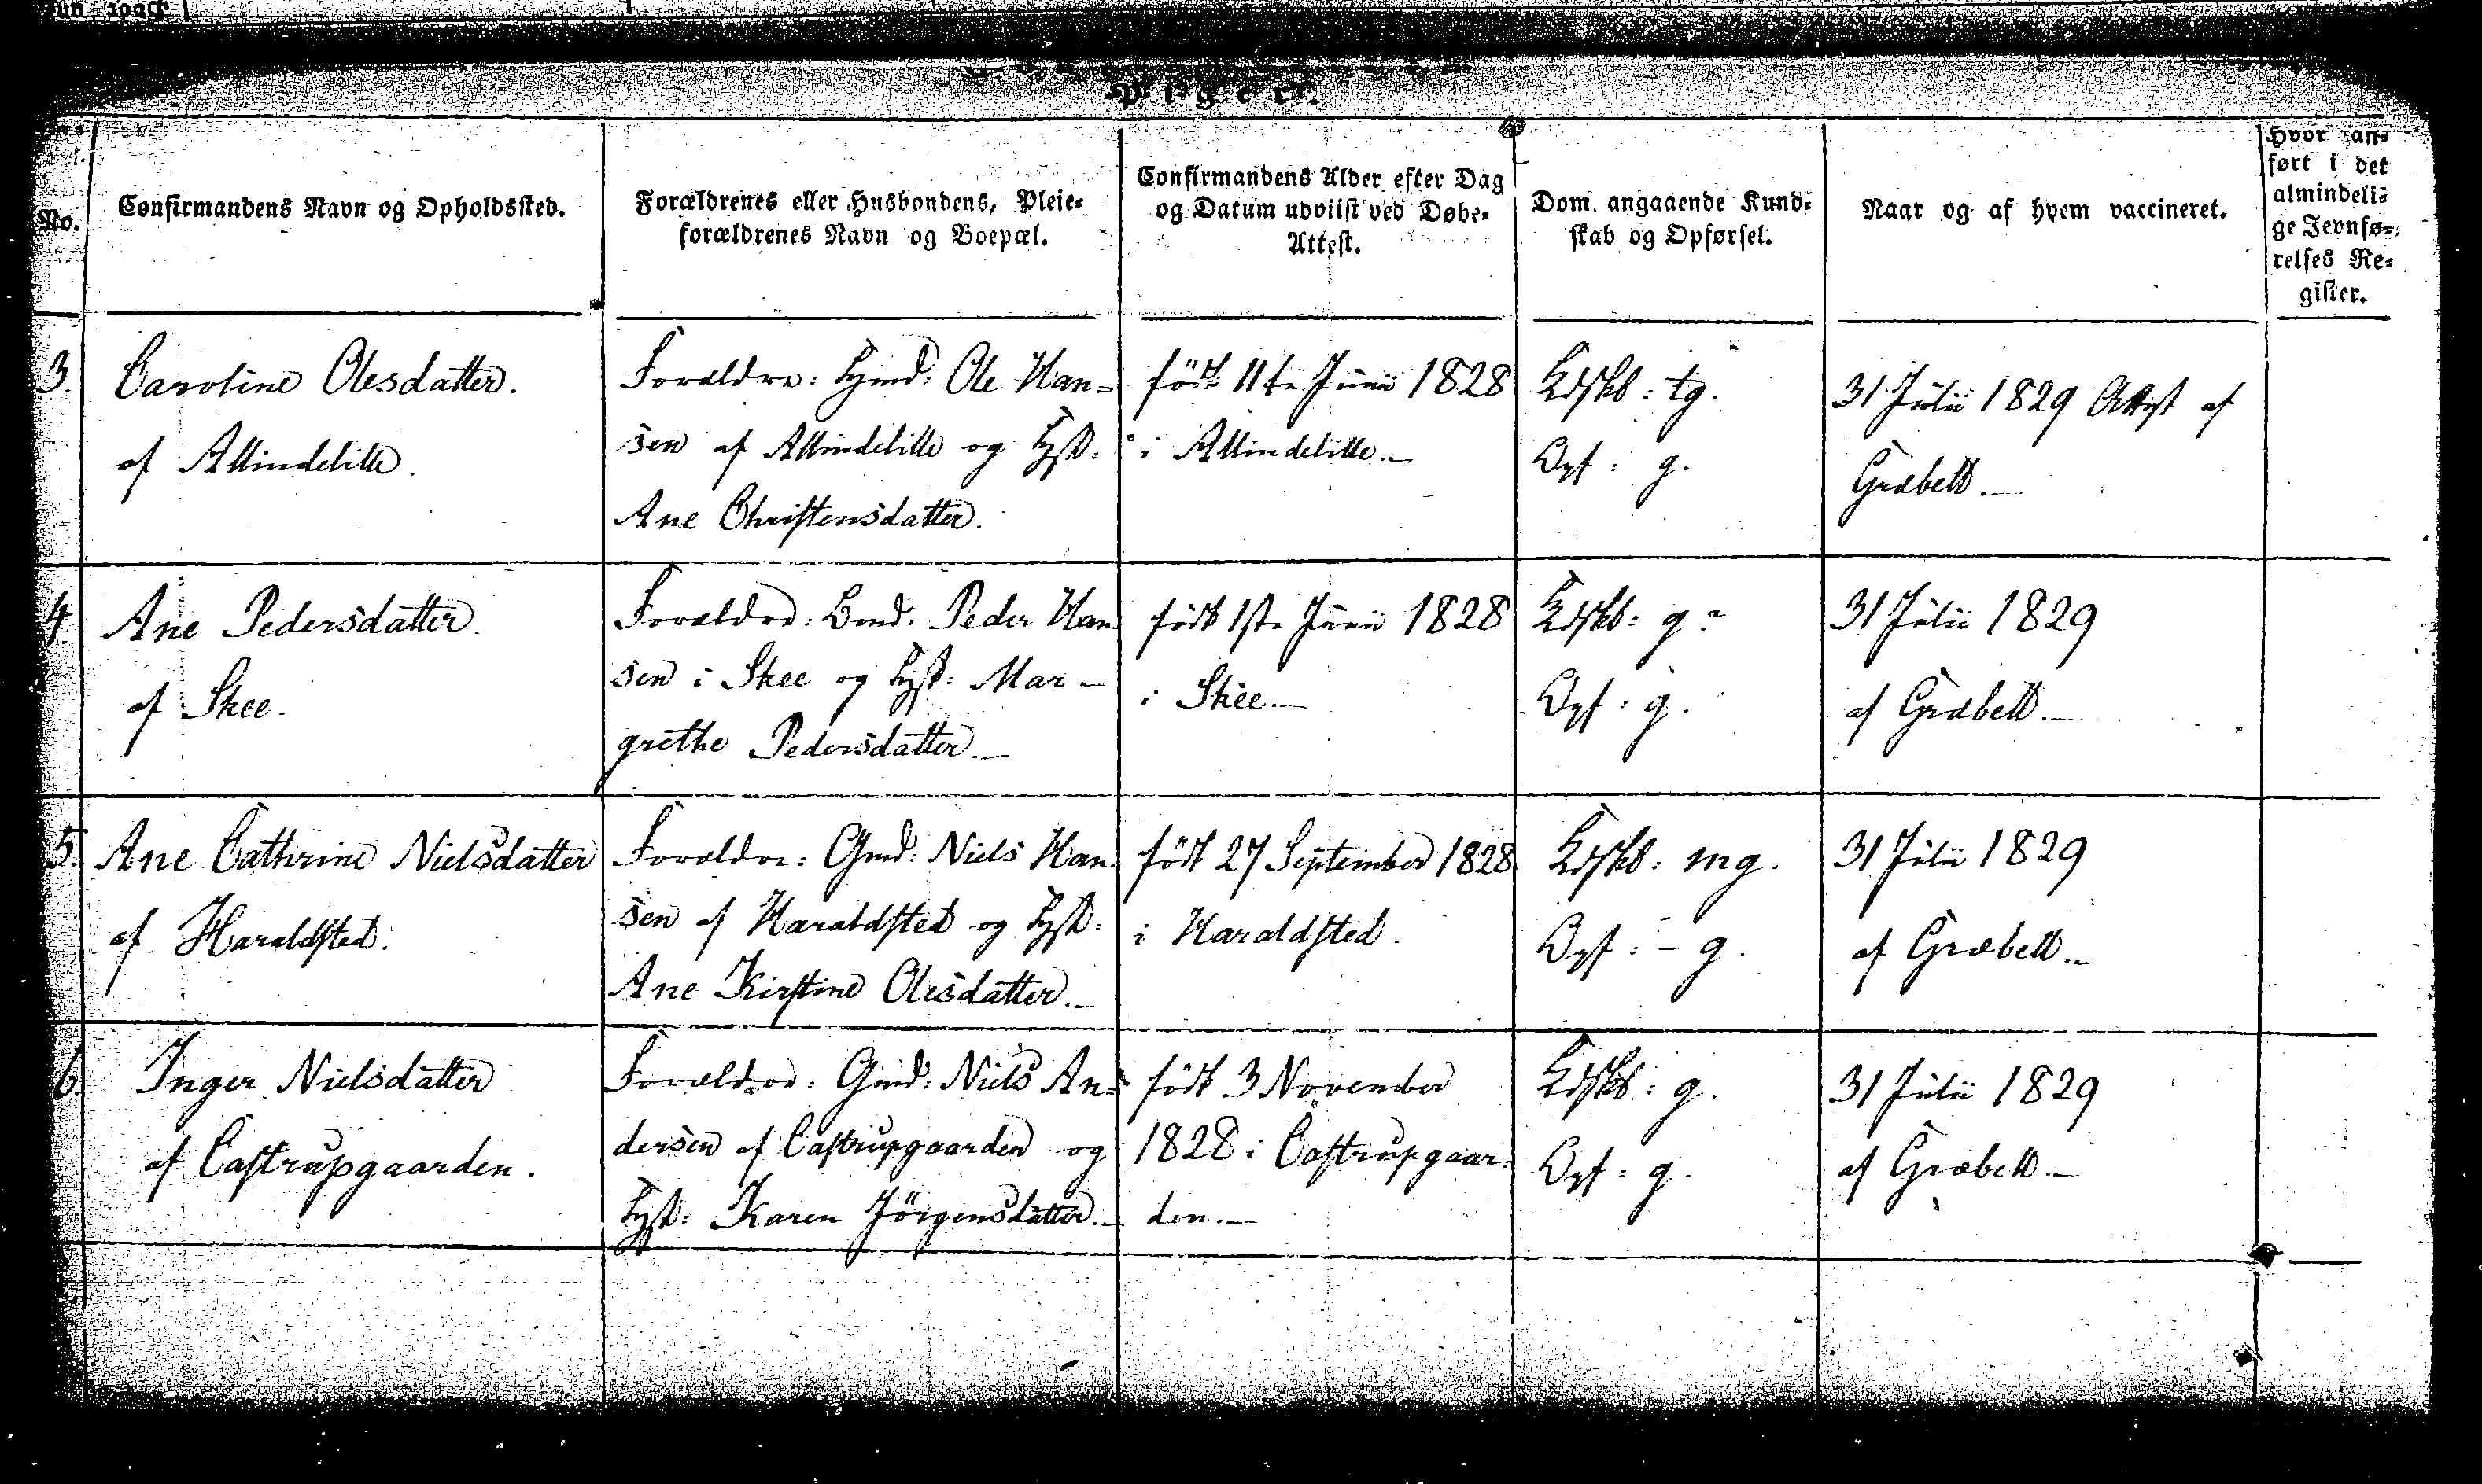 Piger.
No.
Confirmandens Navn og Opholdssted.
Forældrenes eller Husbondens, Pleie-
forældrenes Navn og Boepæl.
Confirmandens Alder efter Dag
og Datum udviist ved Døbe-
Attest.
Dom angaaende Kund-
skab og Opførsel.
Naar og af hvem vaccineret.
Hvor an-
ført i det
almindeli-
ge Jevnfø-
relses Re-
gister.
3.
Caroline Olesdatter.
af Allindelille.
Forældre: Ole Han-
sen af Allindelille og Hst:
Ane Christensdatter.
født 11te Junii 1828
i Allindelille.
Kdskb: tg.
Opf: g.
31 Julii 1829 Attest af
Græbell.
4.
Ane Pedersdatter.
af Skee.
Forældre: Bmd: Peder Han
sen i Skee og Hst: Mar-
grethe Pedersdatter.
født 1ste Junii 1828
i Skee.
Kdskb: g?
Opf: g.
31 Julii 1829
af Græbell.
5.
Ane Cathrine Nielsdatter
af Haraldsted.
Forældre: Gmd: Niels Han-
sen af Haraldsted og Hst:
Ane Kirstine Olesdatter.
født 27 September 1828
i Haraldsted.
Kdskb: mg.
Opf: - g.
31 Julii 1829
af Græbell.
6.
Inger Nielsdatter
af Castrupgaarden.
Forældre: Gmd: Niels An-
dersen af Castrupgaarden og
Hst: Karen Jörgensdatter.
født 3 November
1828 i Castrupgaar-
den.
Kdskb: g.
Opf: g.
31 Julii 1829
af Græbell.